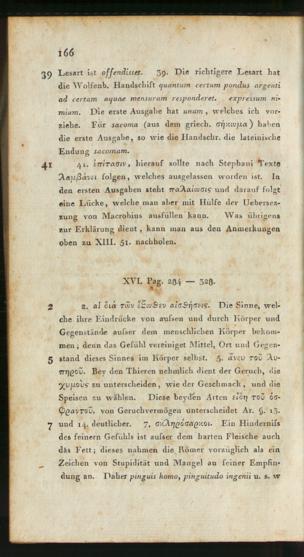 166
39 Lesart ist offendisset. 39. Die richtigere Lesart hat
die Wolfenb. Handschift quantum certum pondus argenti
ad certam aquae mensuram responderet. expressum ni-
mium. Die erste Ausgabe hat unam, welches ich vor-
ziehe. Für sacoma (aus dem griech. σήκωμα) haben
die erste Ausgabe, so wie die Handschr. die lateinische
Endung sacomam.
41 41. ἐπίτασιν, hierauf sollte nach Stephani Texte
λαμβάνει folgen, welches ausgelassen worden ist. In
den ersten Ausgaben steht παλαίωσις und darauf folgt
eine Lücke, welche man aber mit Hülfe der Ueberset-
zung von Macrobius ausfüllen kann. Was übrigens
zur Erklärung dient, kann man aus den Anmerkungen
oben zu XIII. 51. nachholen.
XVI. Pag. 284 — 328.
2 2. αἱ διὰ τῶν ἔξωθεν αἰσθήσεις. Die Sinne, wel-
che ihre Eindrücke von aufsen und durch Körper und
Gegenstände aufser dem menschlichen Körper bekom-
men; denn das Gefühl vereiniget Mittel, Ort und Gegen-
5 stand dieses Sinnes im Körper selbst. 5. ἄνευ τοῦ λυ-
πηροῦ. Bey den Thieren nehmlich dient der Geruch, die
χυμοὺς zu unterscheiden, wie der Geschmack, und die
Speisen zu wählen. Diese beyden Arten εἴδη τοῦ ὀσ-
φραντοῦ, von Geruchvermögen unterscheidet Ar. §. 13.
7 und 14. deutlicher. 7. σκληρόσαρκοι. Ein Hindernifs
des feinern Gefühls ist aufser dem harten Fleische auch
das Fett; dieses nahmen die Römer vorzüglich als ein
Zeichen von Stupidität und Mangel an feiner Empfin-
dung an. Daher pinguis homo, pinguitudo ingenii u. s. w